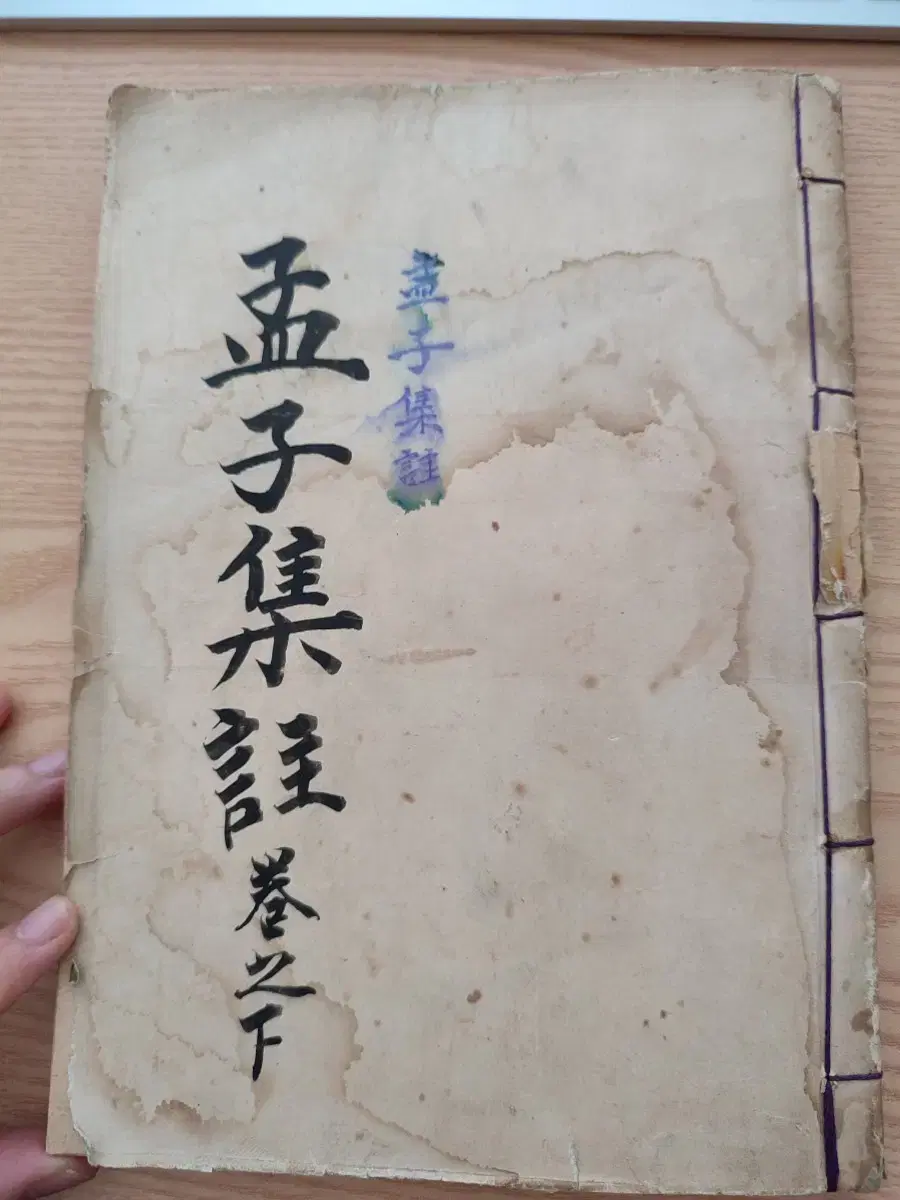 孟子集註
孟子集註 卷之下